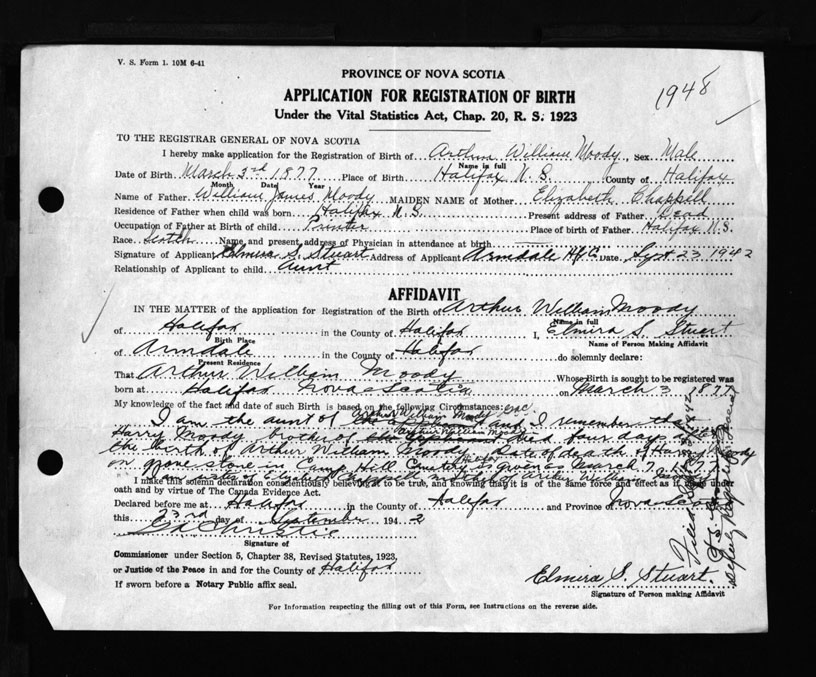 V. S. Form 1. 10M 6-41
PROVINCE OF NOVA SCOTIA
APPLICATION FOR REGISTRATION OF BIRTH
1948
Under the Vital Statistics Act, Chap. 20, R. S. 1923
TO THE REGISTRAR GENERAL OF NOVA SCOTIA
I hereby make application for the Registration of Birth of Arthur William Moody, Sex Male
Name in full
Date of Birth March 3rd 1877 Place of Birth Halifax N. S. County of Halifax
Month Date Year
Name of Father William James Moody MAIDEN NAME of Mother Elizabeth Chappell
Residence of Father when child was born Halifax N. S. Present address of Father Dead
Occupation of Father at Birth of child Printer Place of birth of Father Halifax N.S.
Race Scotch Name and present address of Physician in attendance at birth
Signature of Applicant Elmira S. Stuart Address of Applicant Armdale Hfx Co. Date Sept 23 1942
Relationship of Applicant to child Aunt
AFFIDAVIT
IN THE MATTER of the application for Registration of the Birth of Arthur William Moody
Name in full
of Halifax in the County of Halifax I, Elmira S. Stuart
Birth Place Name of Person Making Affidavit
of Armdale in the County of Halifax do solemnly declare:
Present Residence
That Arthur William Moody Whose Birth is sought to be registered was
born at Halifax Nova Scotia on March 3 1877
My knowledge of the fact and date of such Birth is based on the following Circumstances:
Arthur William Moody
I am the aunt of and I remember that
Arthur William Moody
Harry Moody brother of died four days after
the birth of Arthur William Moody. Date of death of Harry Moody
on grave stone in Camp Hill Cemetery is given as March 7, 1877.
Elizabeth Chappell Arthur William Moody
I make this solemn declaration conscientiously believing it to be true, and knowing that it is of the same force and effect as if made under
oath and by virtue of The Canada Evidence Act.
Declared before me at Halifax in the County of Halifax and Province of Nova Scotia
this 23rd day of September 1942
Christie
Signature of
Commissioner under Section 5, Chapter 38, Revised Statutes, 1923,
or Justice of the Peace in and for the County of Halifax
If sworn before a Notary Public affix seal.
Elmira S. Stuart.
Signature of Person making Affidavit
Filed 1942
Deputy Registrar General
For Information respecting the filling out of this Form, see Instructions on the reverse side.